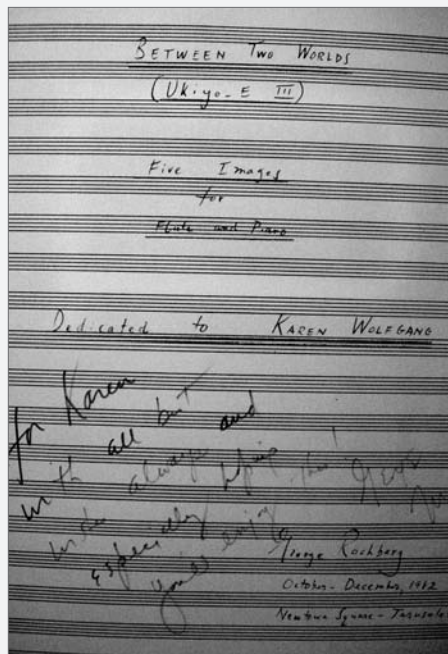 BETWEEN TWO WORLDS
(Ukiyo-E III)
Five Images
for
Flute and Piano
Dedicated to KAREN WOLFGANG
for Karen
with all but
always and
especially hoping
you'll enjoy this!
George Rochberg
October - December, 1982
Newtown Square -